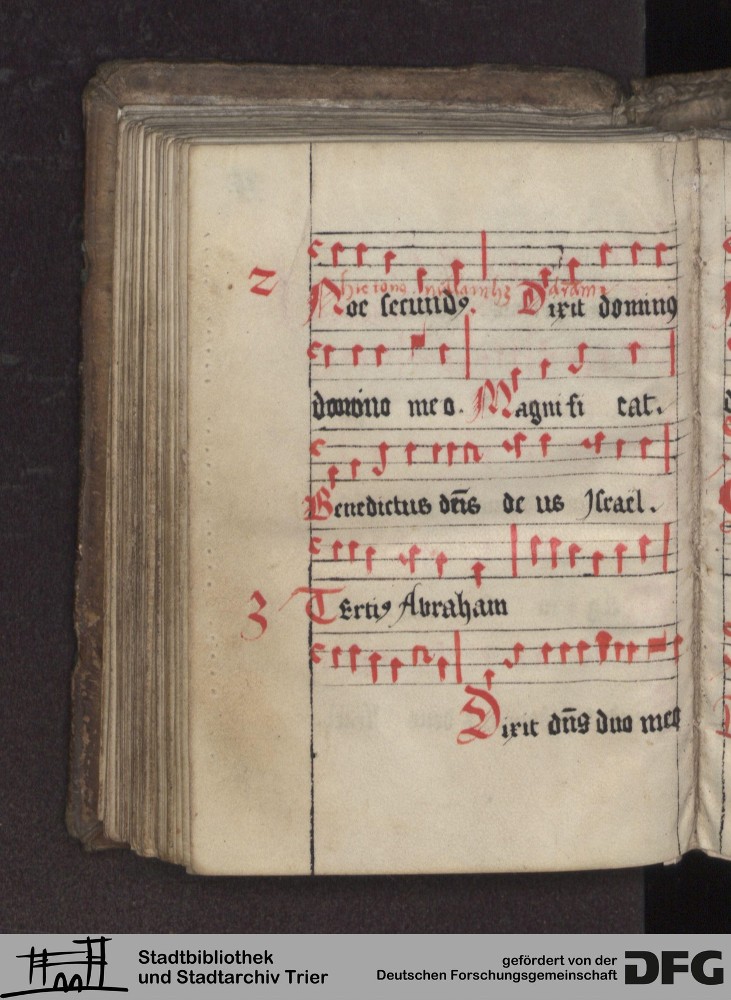 2
hic tonus
Noe secundꝯ. Dixit dominꝯ
domino meo. Magnifi cat.
Benedictus dn̄s de us Jsrael.
3 Tertiꝯ Abraham
Dixit dn̄s dno meo
Stadtbibliothek
und Stadtarchiv Trier
gefördert von der
Deutschen Forschungsgemeinschaft
DFG